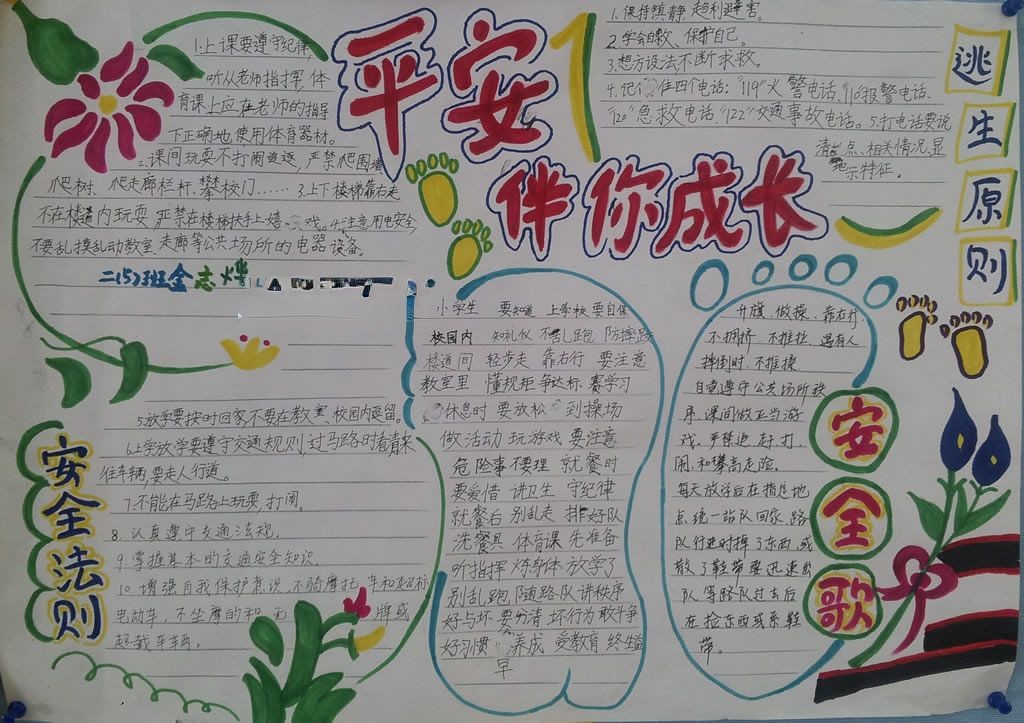 平安
伴你成长
1.上课要遵守纪律,
听从老师指挥,体
育课上应在老师的指导
下正确地使用体育器材。
2.课间玩耍不打闹追逐,严禁爬围墙
爬树、爬走廊栏杆、攀校门……3.上下楼梯靠右走
不在楼道内玩耍 严禁在楼梯扶手上嬉戏。4.注意用电安全,
不要乱摸乱动教室、走廊等公共场所的电器设备。
二(5)班金志烽
5.放学要按时回家不要在教室、校园内逗留。
6.上学放学要遵守交通规则,过马路时看清来
往车辆,要走人行道。
7.不能在马路上玩耍,打闹。
8.认真遵守交通法规,
9.掌握基本的交通安全知识。
10.增强自我保护意识,不骑摩托车和超标
电动车,不坐摩的和无牌或
超载车车辆。
安全法则
1.保持镇静,趋利避害。
2.学会自救、保护自己。
3.想方设法不断求救。
4.记住四个电话:"119"火警电话、"110"报警电话、
"120"急救电话、"122"交通事故电话。5.打电话要说
清地点、相关情况,显
示特征。
逃生原则
小学生 要知道 上学校 要自保
校园内 知礼仪 不乱跑 防摔跤
楼道间 轻步走 靠右行 要注意
教室里 懂规矩 争达标 赛学习
休息时 要放松 到操场
做活动 玩游戏 要注意
危险事 不要理 就餐时
要爱惜 讲卫生 守纪律
就餐后 别乱走 排好队
洗餐具 体育课 先准备
听指挥 炼身体 放学了
别乱跑 随路队 讲秩序
好与坏 要分清 坏行为 敢斗争
好习惯 养成 受教育 终生益
早
升旗、做操、靠右行,
不拥挤,不推拉,遇有人
摔倒时,不推搡,
自觉遵守公共场所秩
序,课间做正当游
戏,严禁追、赶、打、
闹,和攀高走险。
每天放学后在指定地
点统一站队回家,路
队行进时掉了东西,或
散了鞋带要迅速出
队等路队过去后
在捡东西或系鞋
带。
安全歌